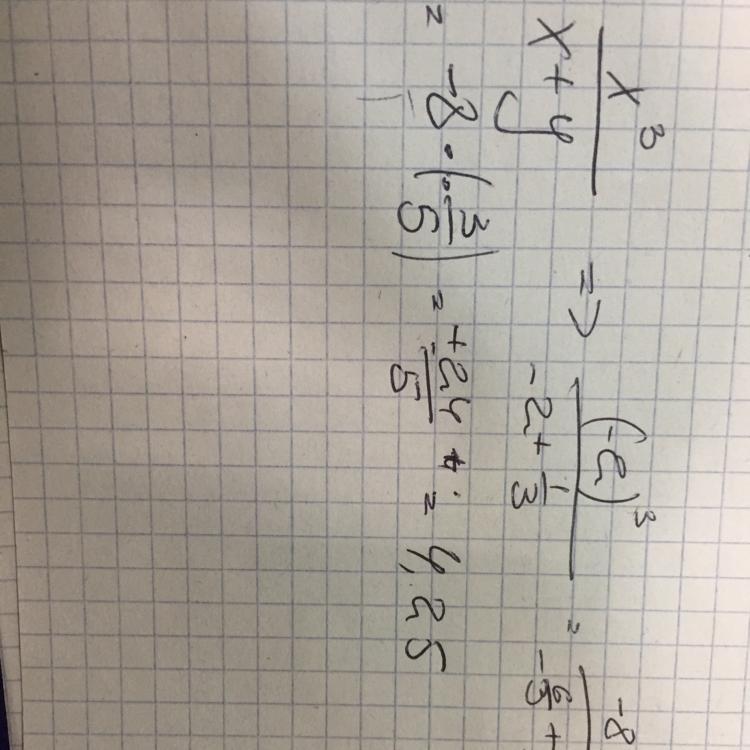 x³/(x+y) => (-2)³/(-2+1/3) = -8/(-6/3+
= -8·(-3/5) = +24/5 = 4,25